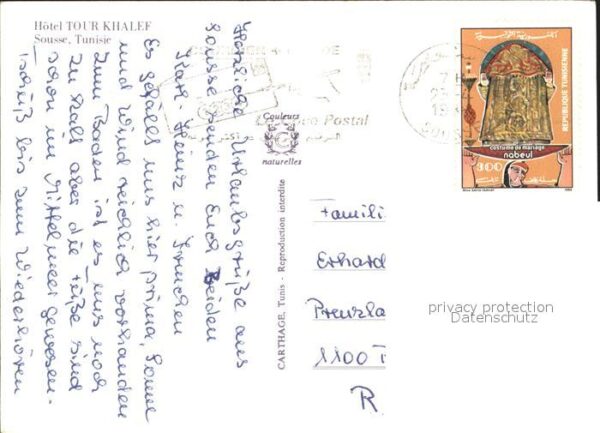 Hôtel TOUR KHALEF
Sousse, Tunisie
Herzliche Urlaubsgrüße aus
Sousse senden Euch Beiden
Karl Heinz u. Trudchen
Es gefällt uns hier prima, Sonne
und Wind reichlich vorhanden
zum Baden ist es uns noch
zu kalt aber die Füße sind
schon im Mittelmeer gewesen.
Tschüß bis zum Wiederhören
Couleurs
naturelles
CARTHAGE, Tunis - Reproduction interdite
Postal
REPUBLIQUE TUNISIENNE
costume de mariage
nabeul
300
Famili
Erhard
Prenzla
1100
R
privacy protection
Datenschutz